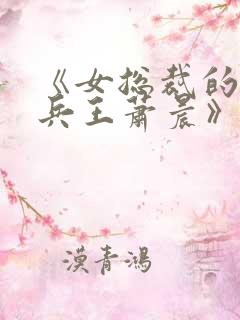 《女总裁的
兵王萧晨》
漠青鸿